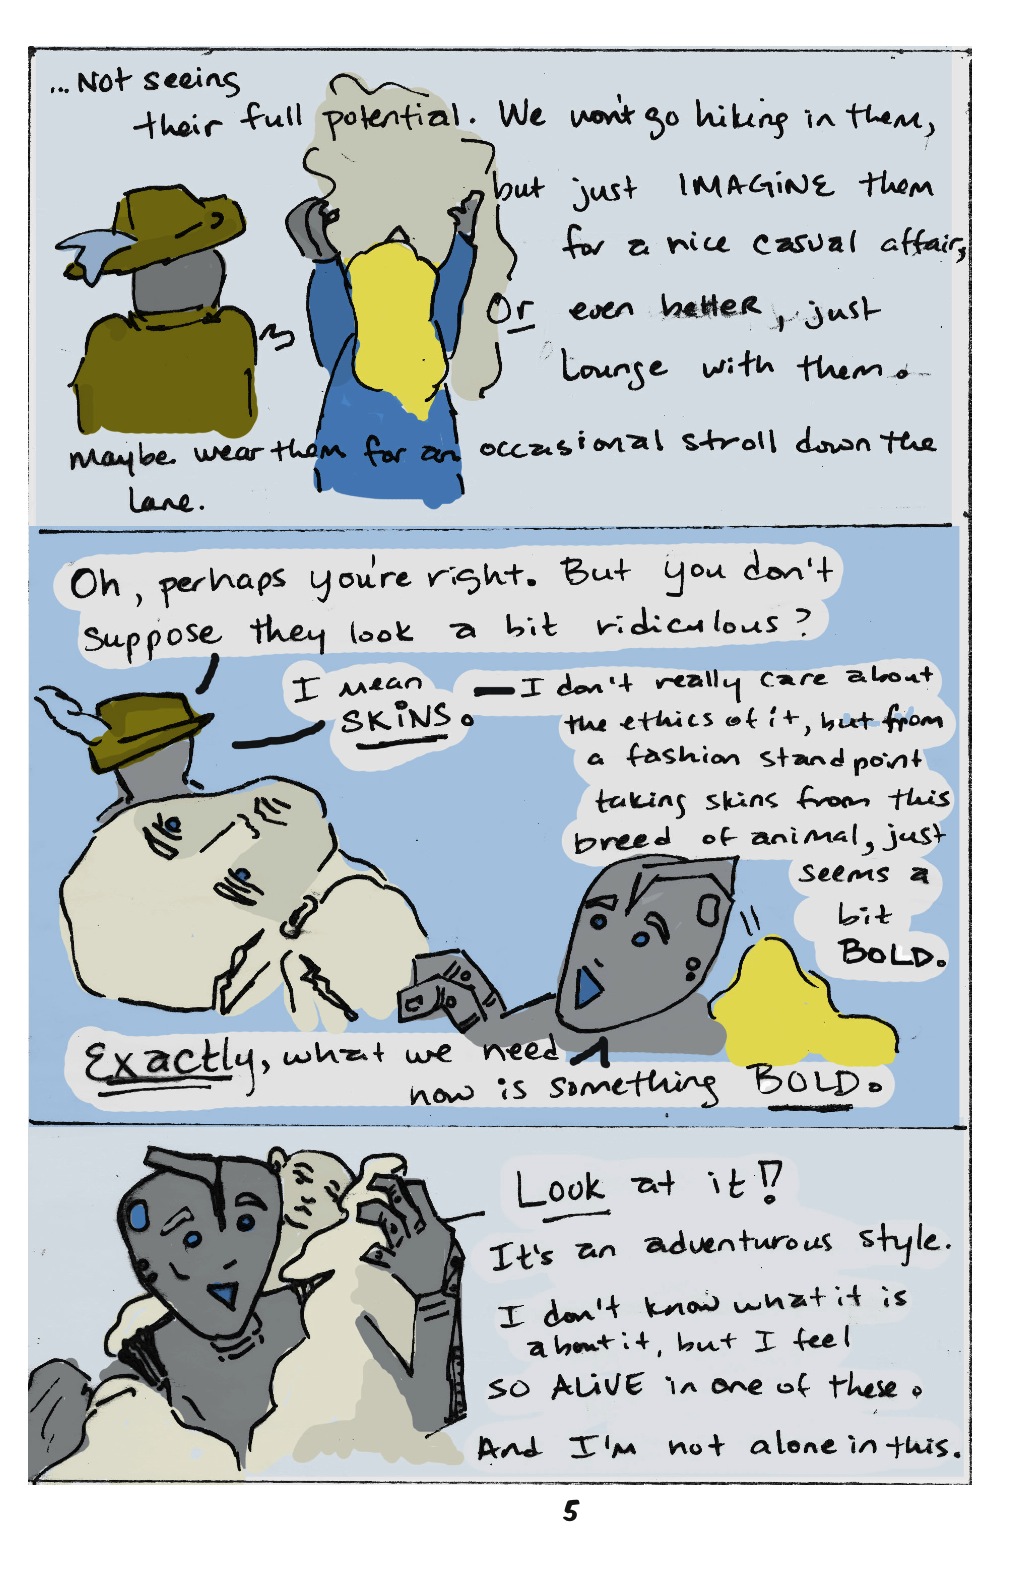 ...Not seeing
their full potential. We won't go hiking in them,
but just IMAGINE them
for a nice casual affair,
Or even better, just
Lounge with them.
Maybe wear them for an occasional stroll down the
lane.
Oh, perhaps you're right. But you don't
suppose they look a bit ridiculous?
I mean
SKINS.
— I don't really care about
the ethics of it, but from
a fashion standpoint
taking skins from this
breed of animal, just
seems a
bit
BOLD.
Exactly, what we need
now is something BOLD.
Look at it!?
It's an adventurous style.
I don't know what it is
about it, but I feel
so ALIVE in one of these.
And I'm not alone in this.
5